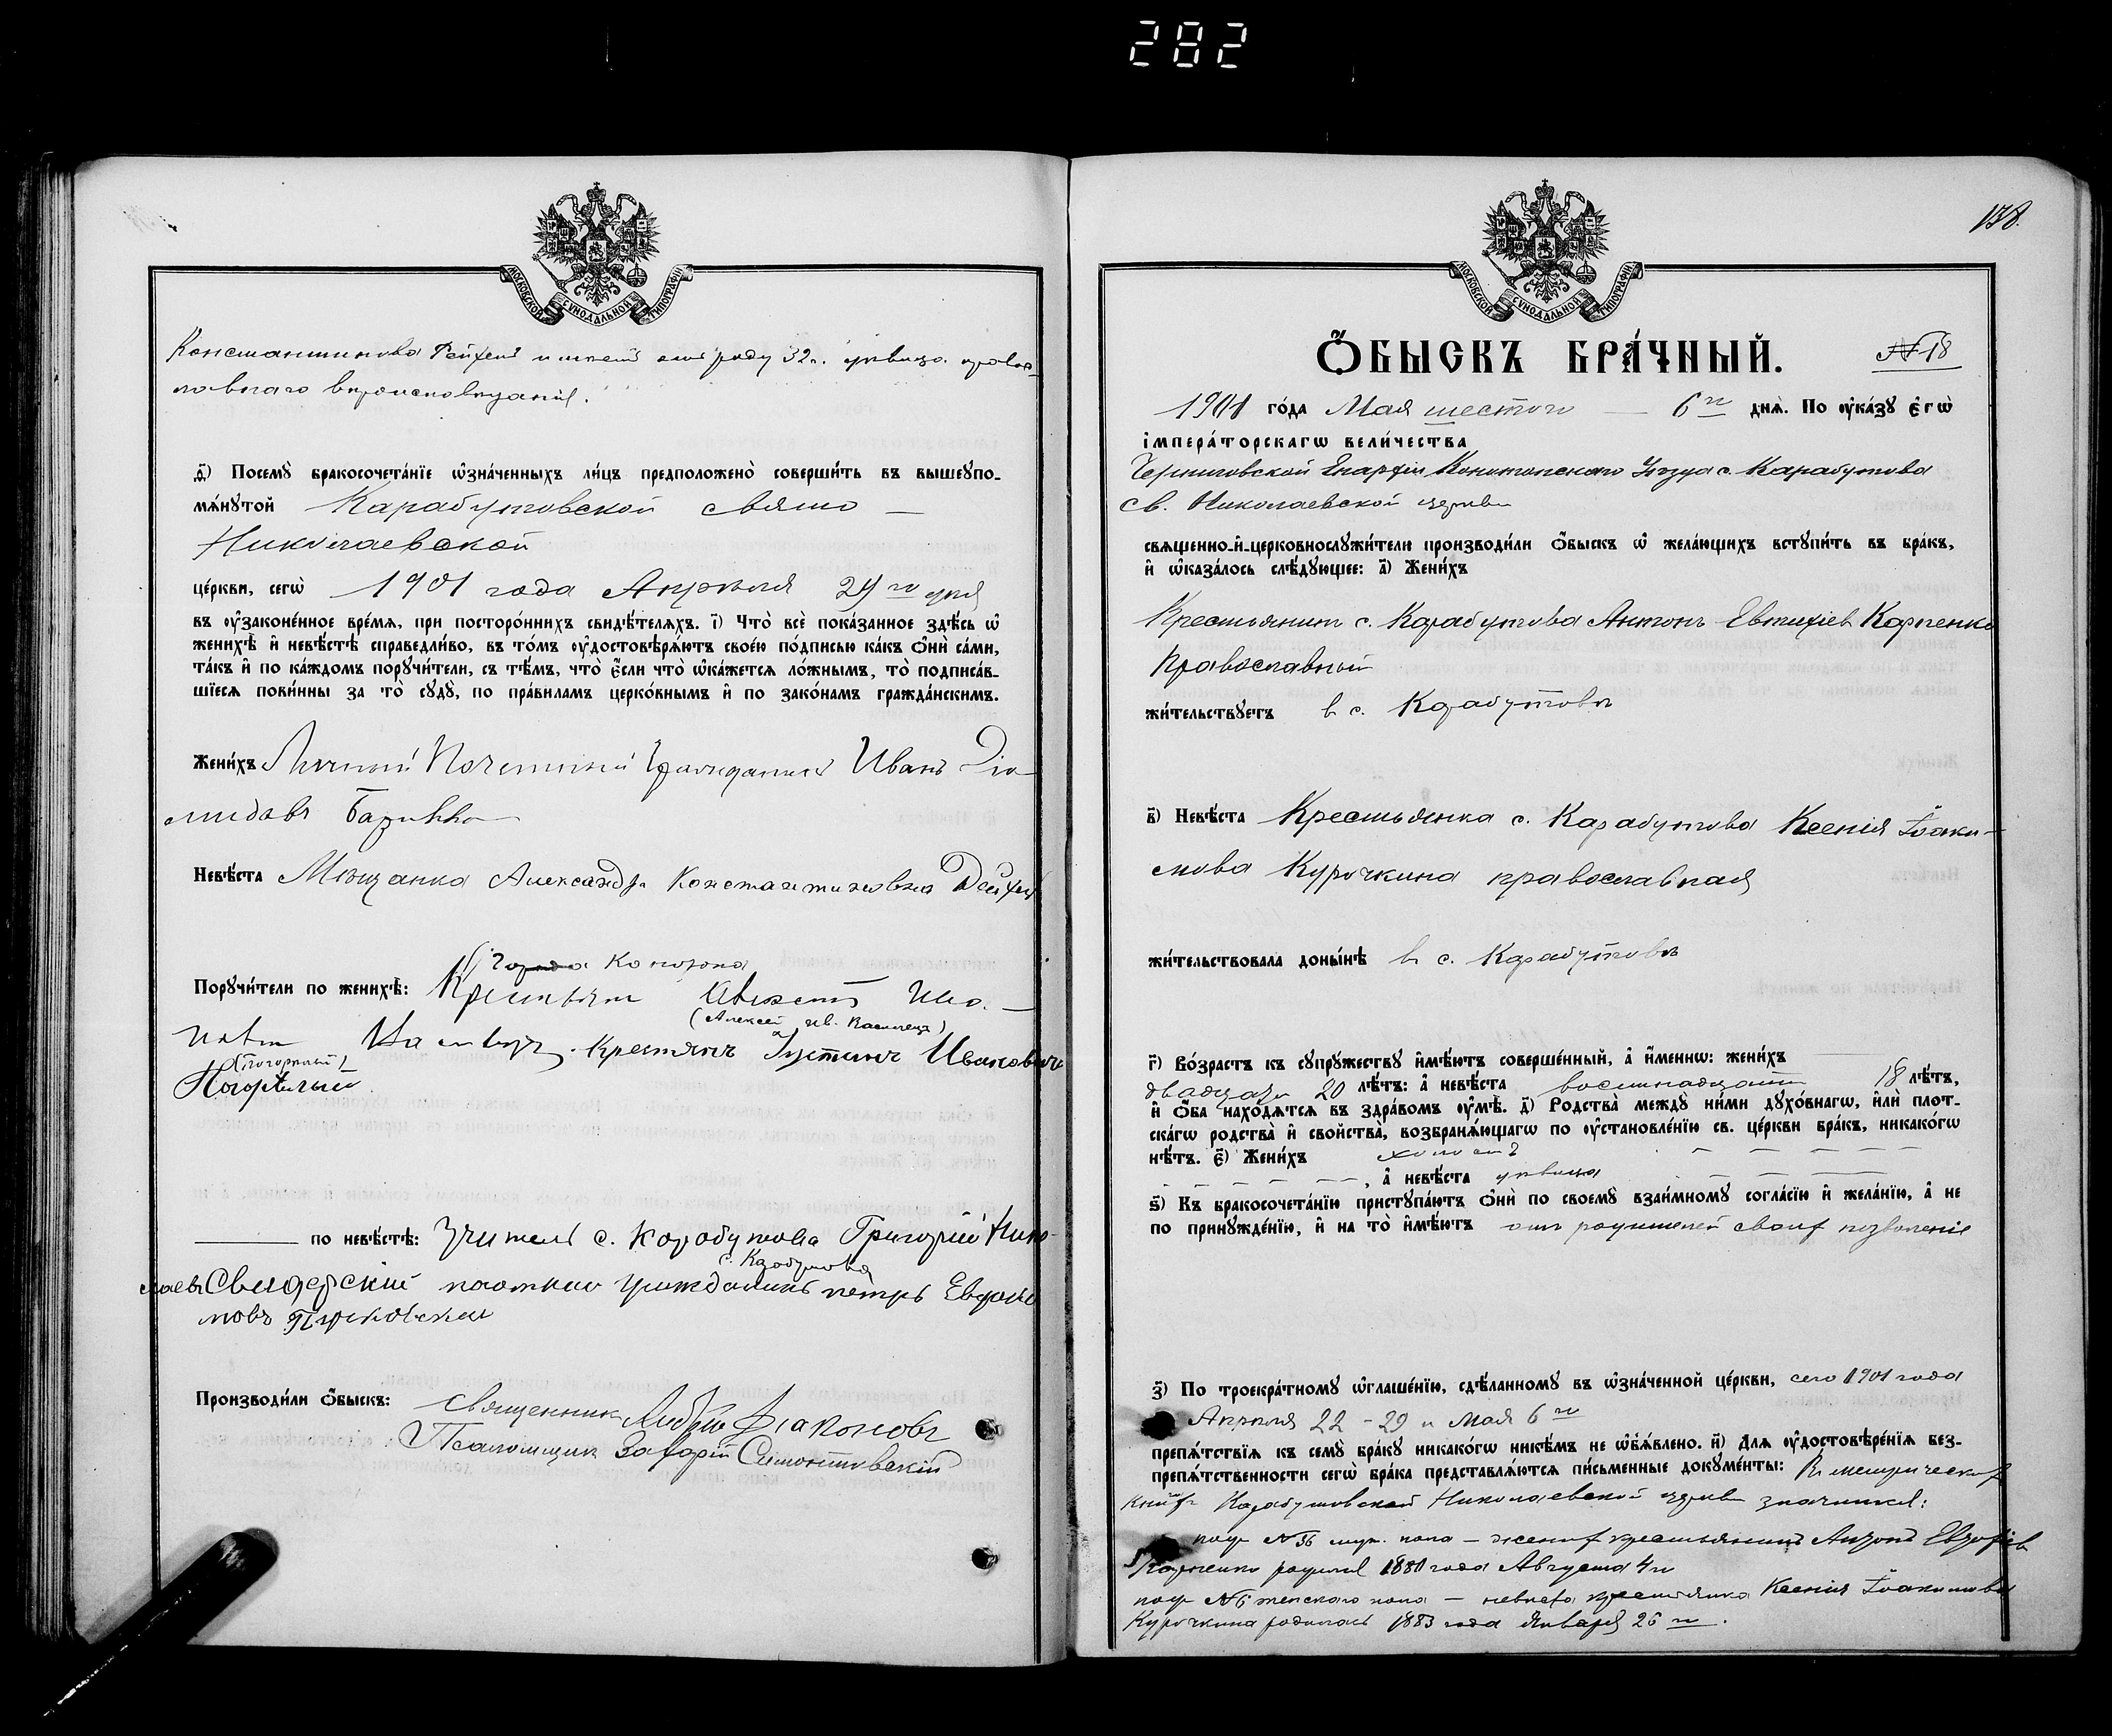 282
МОСКОВСКОЙ СѴНОДАЛЬНОЙ ТИПОГРАФІИ
Константинова Рейхетъ имѣетъ отъ роду 32 г. дѣвица правос-
лавнаго вѣроисповѣданія.
д҃) Посемꙋ̀ бракосочета́нїе ѡ҆зна́ченныхъ ли́цъ предположено̀ соверши́ть въ вышеꙋпо-
мѧ́нꙋтой Карабутовской свято —
Николаевской
це́ркви, сегѡ̀ 1901 года Апрѣля 29 го дня
въ ᲂу҆законе́нное вре́мѧ, при посторо́ннихъ свидѣ́телѧхъ. і҃) Что̀ всѐ пока́занное здѣ́сь ѡ҆
женихѣ̀ и҆ невѣ́стѣ справедли́во, въ то́мъ ᲂу҆достовѣрѧ́ютъ свое́ю по́дписью ка́къ ѻ҆нѝ са́ми,
та́къ и҆ по ка́ждомъ порꙋчи́тели, съ тѣ́мъ, что̀ є҆́сли что̀ ѡ҆ка́жетсѧ ло́жнымъ, то̀ подписа́в-
шїесѧ пови́нны за то̀ сꙋдꙋ̀, по пра́виламъ церко́внымъ и҆ по зако́намъ гражда́нскимъ.
Жени́хъ Личный Почетный Гражданинъ Иванъ Діо-
мидовъ
Невѣ́ста Мѣщанка Александра Константиновна
города Конотопа
Порꙋчи́тели по женихѣ̀: Крестьян
(Алексей Ив. )
Крестянъ Іустинъ Иванович
(Погорілый)
Погорілый
по невѣ́стѣ: Учитель с. Коробутова Григорій Нико-
с. Карабутова
лаевъ Свидерскій гражданинъ петръ Евдоки
мовъ
Производи́ли ѻ҆́быскъ: Священникъ Андрей Діаконовъ
Псаломщикъ Захарій Симонтовскій
138.
МОСКОВСКОЙ СѴНОДАЛЬНОЙ ТИПОГРАФІИ
Ѻ҆́БЫСКЪ БРА́ЧНЫЙ. №18
1901 го́да Мая шестого — 6 го днѧ̀. По ᲂу҆ка́зꙋ є҆гѡ̀
і҆мпера́торскагѡ вели́чества
Черниговской Епархіи Конотопскаго Уѣзда с. Карабутова
св. Николаевской церкви
свѧщенно-и҆-церковнослꙋжи́тели производи́ли ѻ҆́быскъ ѡ҆ жела́ющихъ встꙋпи́ть въ бра́къ,
и҆ ѡ҆каза́лось слѣ́дꙋющее: а҃) Жени́хъ
Крестьянинъ с. Карабутова Антонъ Евтихіевъ Карпенко
православный
жи́тельствꙋетъ въ с. Карабутовѣ
в҃) Невѣ́ста Крестьянка с. Карабутова Ксенія Іоаки-
мова Курочкина православная
жи́тельствовала доны́нѣ въ с. Карабутовѣ
г҃) Во́зрастъ къ сꙋпрꙋ́жествꙋ и҆мѣ́ютъ соверше́нный, а҆ и҆́меннѡ: жени́хъ
двадцать 20 лѣ́тъ: а҆ невѣ́ста восемнадцать 18 лѣ́тъ,
и҆ ѻ҆́ба нахо́дѧтсѧ въ здра́вомъ ᲂу҆мѣ̀. д҃) Родства̀ междꙋ̀ ни́ми дꙋхо́внагѡ, и҆лѝ плот-
ска́гѡ родства̀ и҆ свойства̀, возбранѧ́ющагѡ по ᲂу҆становле́нїю св. це́ркви бра́къ, никако́гѡ
нѣ́тъ. є҃) Жени́хъ холостъ
, а҆ невѣ́ста дѣвица
ѕ҃) Къ бракосочета́нїю пристꙋпа́ютъ ѻ҆нѝ по своемꙋ̀ взаи́мномꙋ согла́сїю и҆ жела́нїю, а҆ не
по принꙋжде́нїю, и҆ на то̀ и҆мѣ́ютъ отъ родителей своихъ позволеніе
з҃) По троекра́тномꙋ ѡ҆глаше́нїю, сдѣ́ланномꙋ въ ѡ҆зна́ченной це́ркви, сего 1901 года
Апрѣля 22 - 29 и Мая 6 го
препѧ́тствїѧ къ семꙋ̀ бра́кꙋ никако́гѡ никѣ́мъ не ѡ҆бъѧ́влено. и҃) Для ᲂу҆достовѣре́нїѧ без-
препѧ́тственности сегѡ̀ бра́ка представлѧ́ютсѧ пи́сьменные докꙋме́нты: Въ метрической
книгѣ Карабутовской Николаевской церкви значится:
подъ №36 муж. пола — женихъ крестьянинъ Антонъ
Карпенко родился 1880 года Августа 4 го
подъ №6 женскаго пола — невѣста крестьянка Ксенія Іоакимова
Курочкина родилась 1883 года Января 26 го.